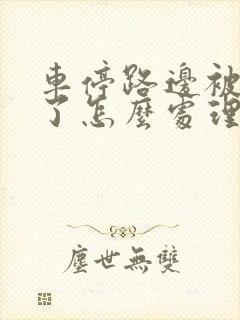 車停路邊被
了怎麼處理
塵世無雙